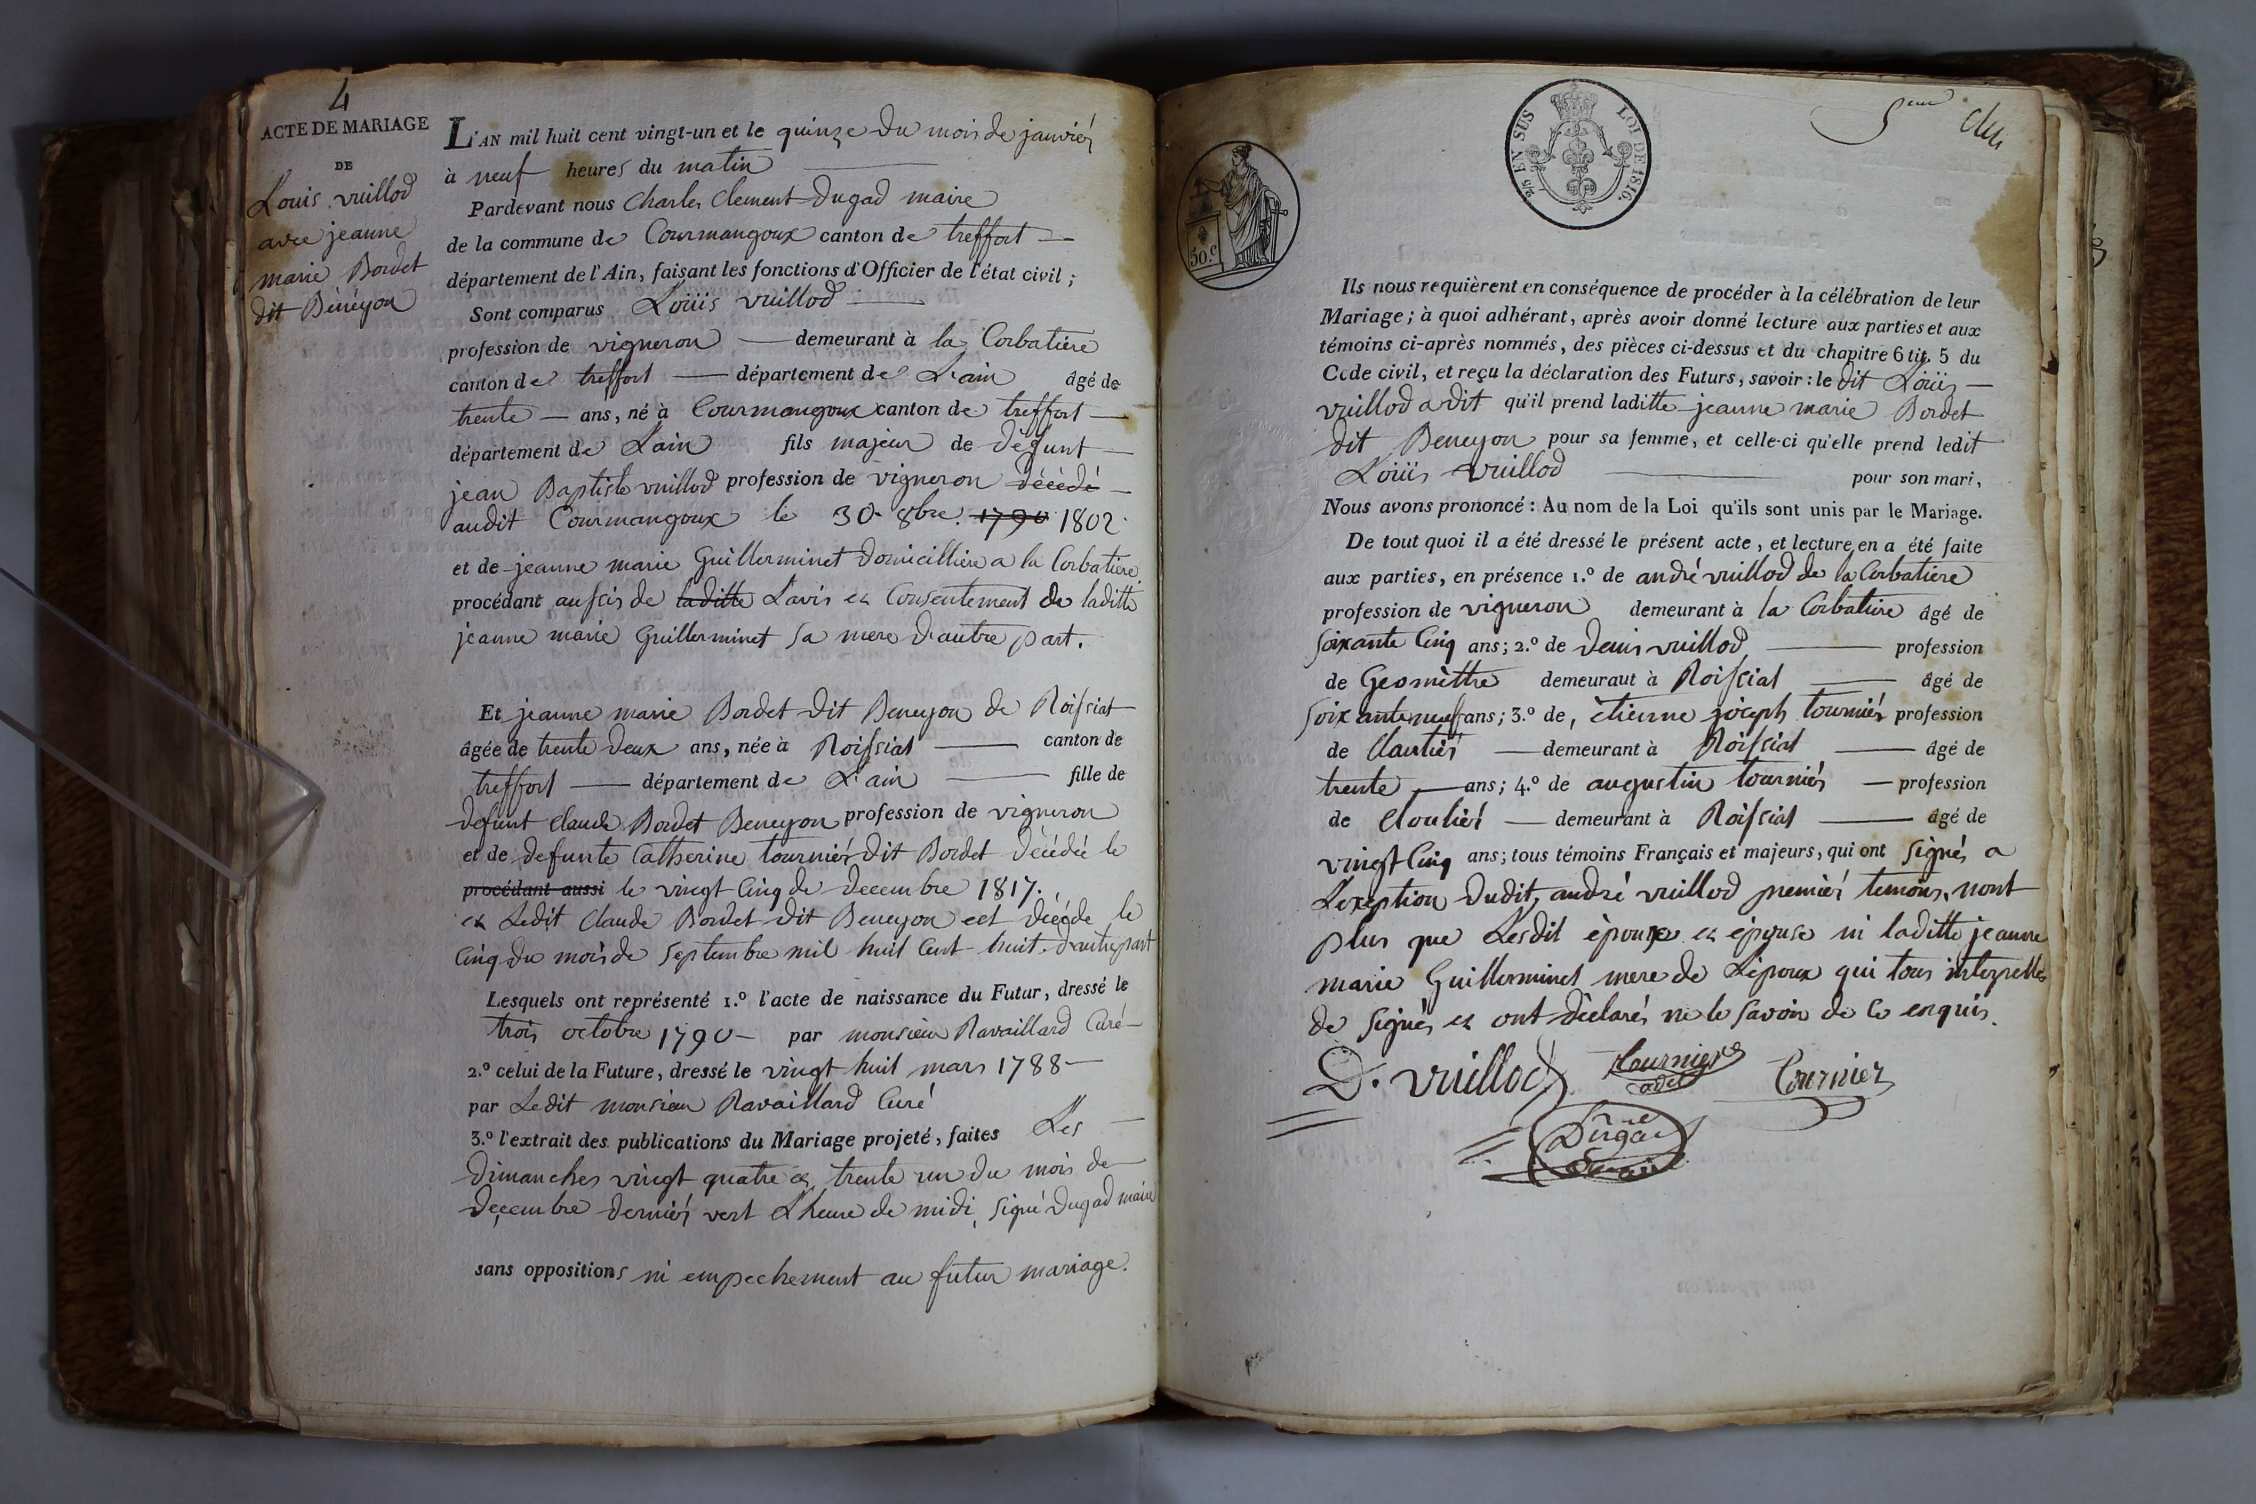 4
ACTE DE MARIAGE
DE
Louis vuillod
avec jeanne
marie Bordet
dit Bénéyon
L'AN mil huit cent vingt-un et le quinze du mois de janviér
à neuf heures du matin
Pardevant nous Charles Clement Dugad maire
de la commune de Courmangoux canton de treffort
département de l'Ain, faisant les fonctions d'Officier de l'état civil;
Sont comparus Loüis vuillod
profession de vigneron demeurant à la Corbatière
canton de treffort département de L'ain âgé de
trente ans, né à Courmangoux canton de treffort
département de Lain fils majeur de défunt
jean Baptiste vuillod profession de vigneron décédé
audit Courmangoux le 30 8bre. 1790 1802.
et de jeanne marie Guillerminet domicillière a la Corbatière
procédant aussis de laditte L'avis et Consentement de laditte
jeanne marie Guillerminet sa mere d'autre part.
Et jeanne marie Bordet dit Beneyon de Roissiat
âgée de trente deux ans, née à Roissiat canton de
treffort département de L'ain fille de
defunt Claude Bordet Beneyon profession de vigneron
et de defunte Catherine tourniér dit Bordet décédée le
procédant aussi le vingt Cinq de decembre 1817.
et Ledit Claude Bordet dit Beneyon est décédé le
Cinq du mois de septembre mil huit Cent huit. d'autre part
Lesquels ont représenté 1.º l'acte de naissance du Futur, dressé le
trois octobre 1790 par monsieur Ravaillard Curé
2.º celui de la Future, dressé le vingt huit mars 1788
par Ledit monsieur Ravaillard Curé
3.º l'extrait des publications du Mariage projeté, faites Les
dimanches vingt quatre et trente un du mois de
decembre derniér vert L'heure de midi, signé Dugad maire
sans oppositions ni empechement au futur mariage.
50.c
2/5 EN SUS LOI DE 1816.
5eme
Ils nous requièrent en conséquence de procéder à la célébration de leur
Mariage; à quoi adhérant, après avoir donné lecture aux parties et aux
témoins ci-après nommés, des pièces ci-dessus et du chapitre 6 tit. 5 du
Code civil, et reçu la déclaration des Futurs, savoir: le dit Loüis
vuillod a dit qu'il prend laditte jeanne marie Bordet
dit Beneyon pour sa femme, et celle-ci qu'elle prend ledit
Loüis vuillod pour son mari,
Nous avons prononcé: Au nom de la Loi qu'ils sont unis par le Mariage.
De tout quoi il a été dressé le présent acte, et lecture en a été faite
aux parties, en présence 1.º de andré vuillod de la Corbatière
profession de vigneron demeurant à la Corbatière âgé de
soixante Cinq ans; 2.º de denis vuillod profession
de Geomêttre demeuraut à Roissiat âgé de
soixante neuf ans; 3.º de, étienne joseph tourniér profession
de Cloutiér demeurant à Roissiat âgé de
trente ans; 4.º de augustin tourniér profession
de Cloutiér demeurant à Roissiat âgé de
vingt Cinq ans; tous témoins Français et majeurs, qui ont signés a
L'exeption dudit, andré vuillod premiér temoins, nont
plus que Lesdit époux et épouse ni laditte jeanne
marie Guillerminet mere de L'époux qui tous interpellés
de signés et ont déclarés ne le savoir de Ce enquis.
D. vuillod Tournier Tournier
Dugad
maire